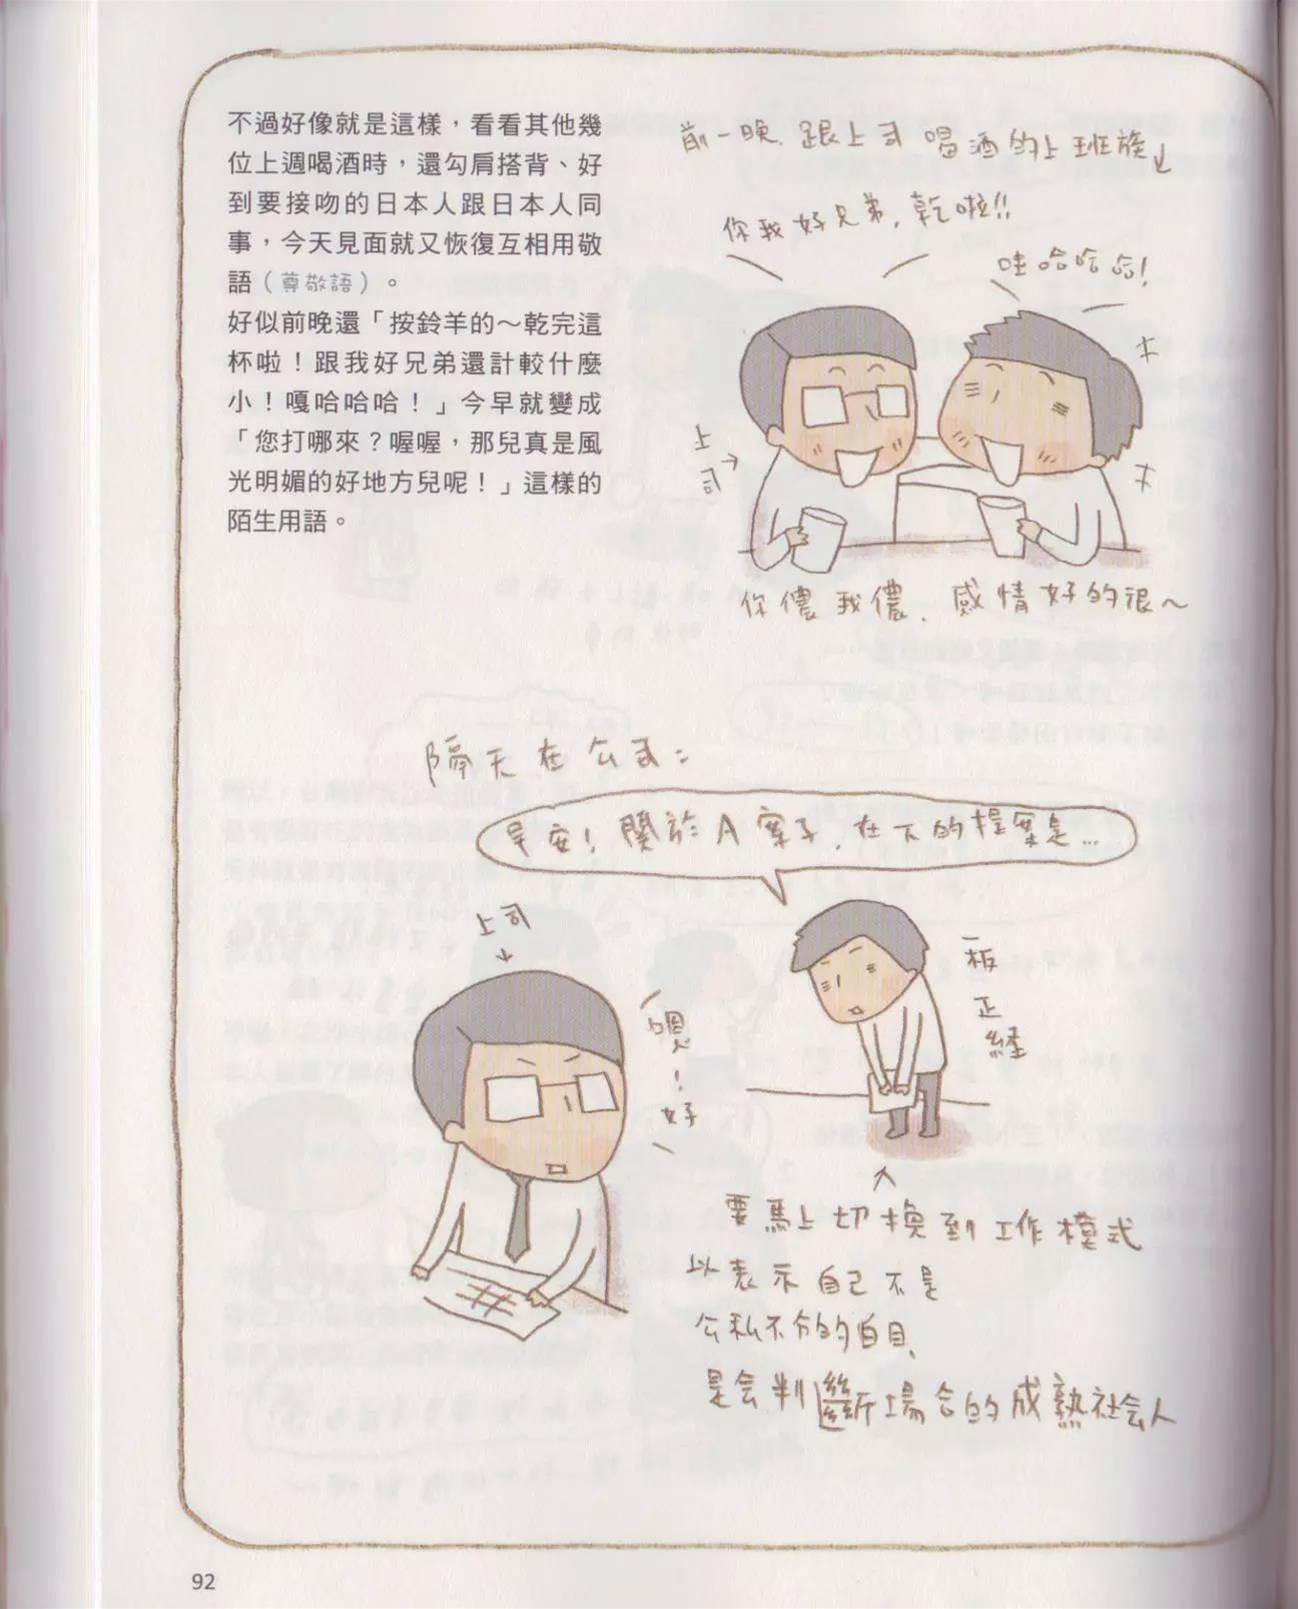 不過好像就是這樣，看看其他幾
位上週喝酒時，還勾肩搭背、好
到要接吻的日本人跟日本人同
事，今天見面就又恢復互相用敬
語（尊敬語）。
好似前晚還「按鈴羊的～乾完這
杯啦！跟我好兄弟還計較什麼
小！嘎哈哈哈！」今早就變成
「您打哪來？喔喔，那兒真是風
光明媚的好地方兒呢！」這樣的
陌生用語。
前一晚，跟上司喝酒的上班族↓
你我好兄弟，乾啦!!
哇哈哈哈!
上司→
你儂我儂，感情好的很～
隔天在公司：
早安！關於A案子，在下的提案是…
上司
↓
嗯！好
一板正経
要馬上切換到工作模式
以表示自己不是
公私不分的白目，
是会判斷場合的成熟社会人
92